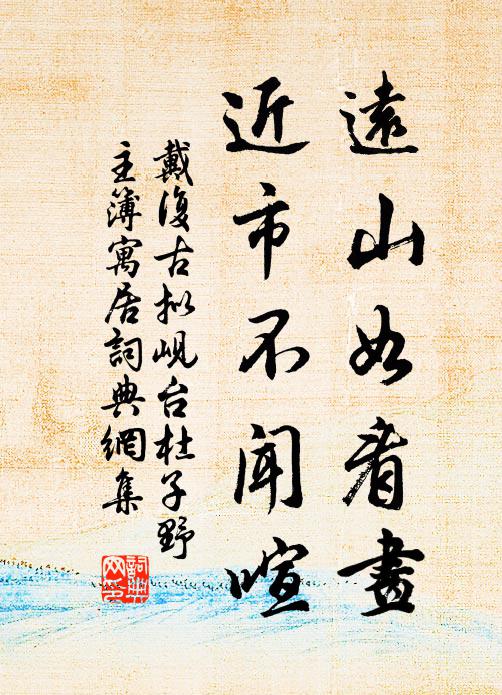 遠山如看畫
近市不聞喧
戴復古拟峴台杜子野
主簿寓居詞典網集